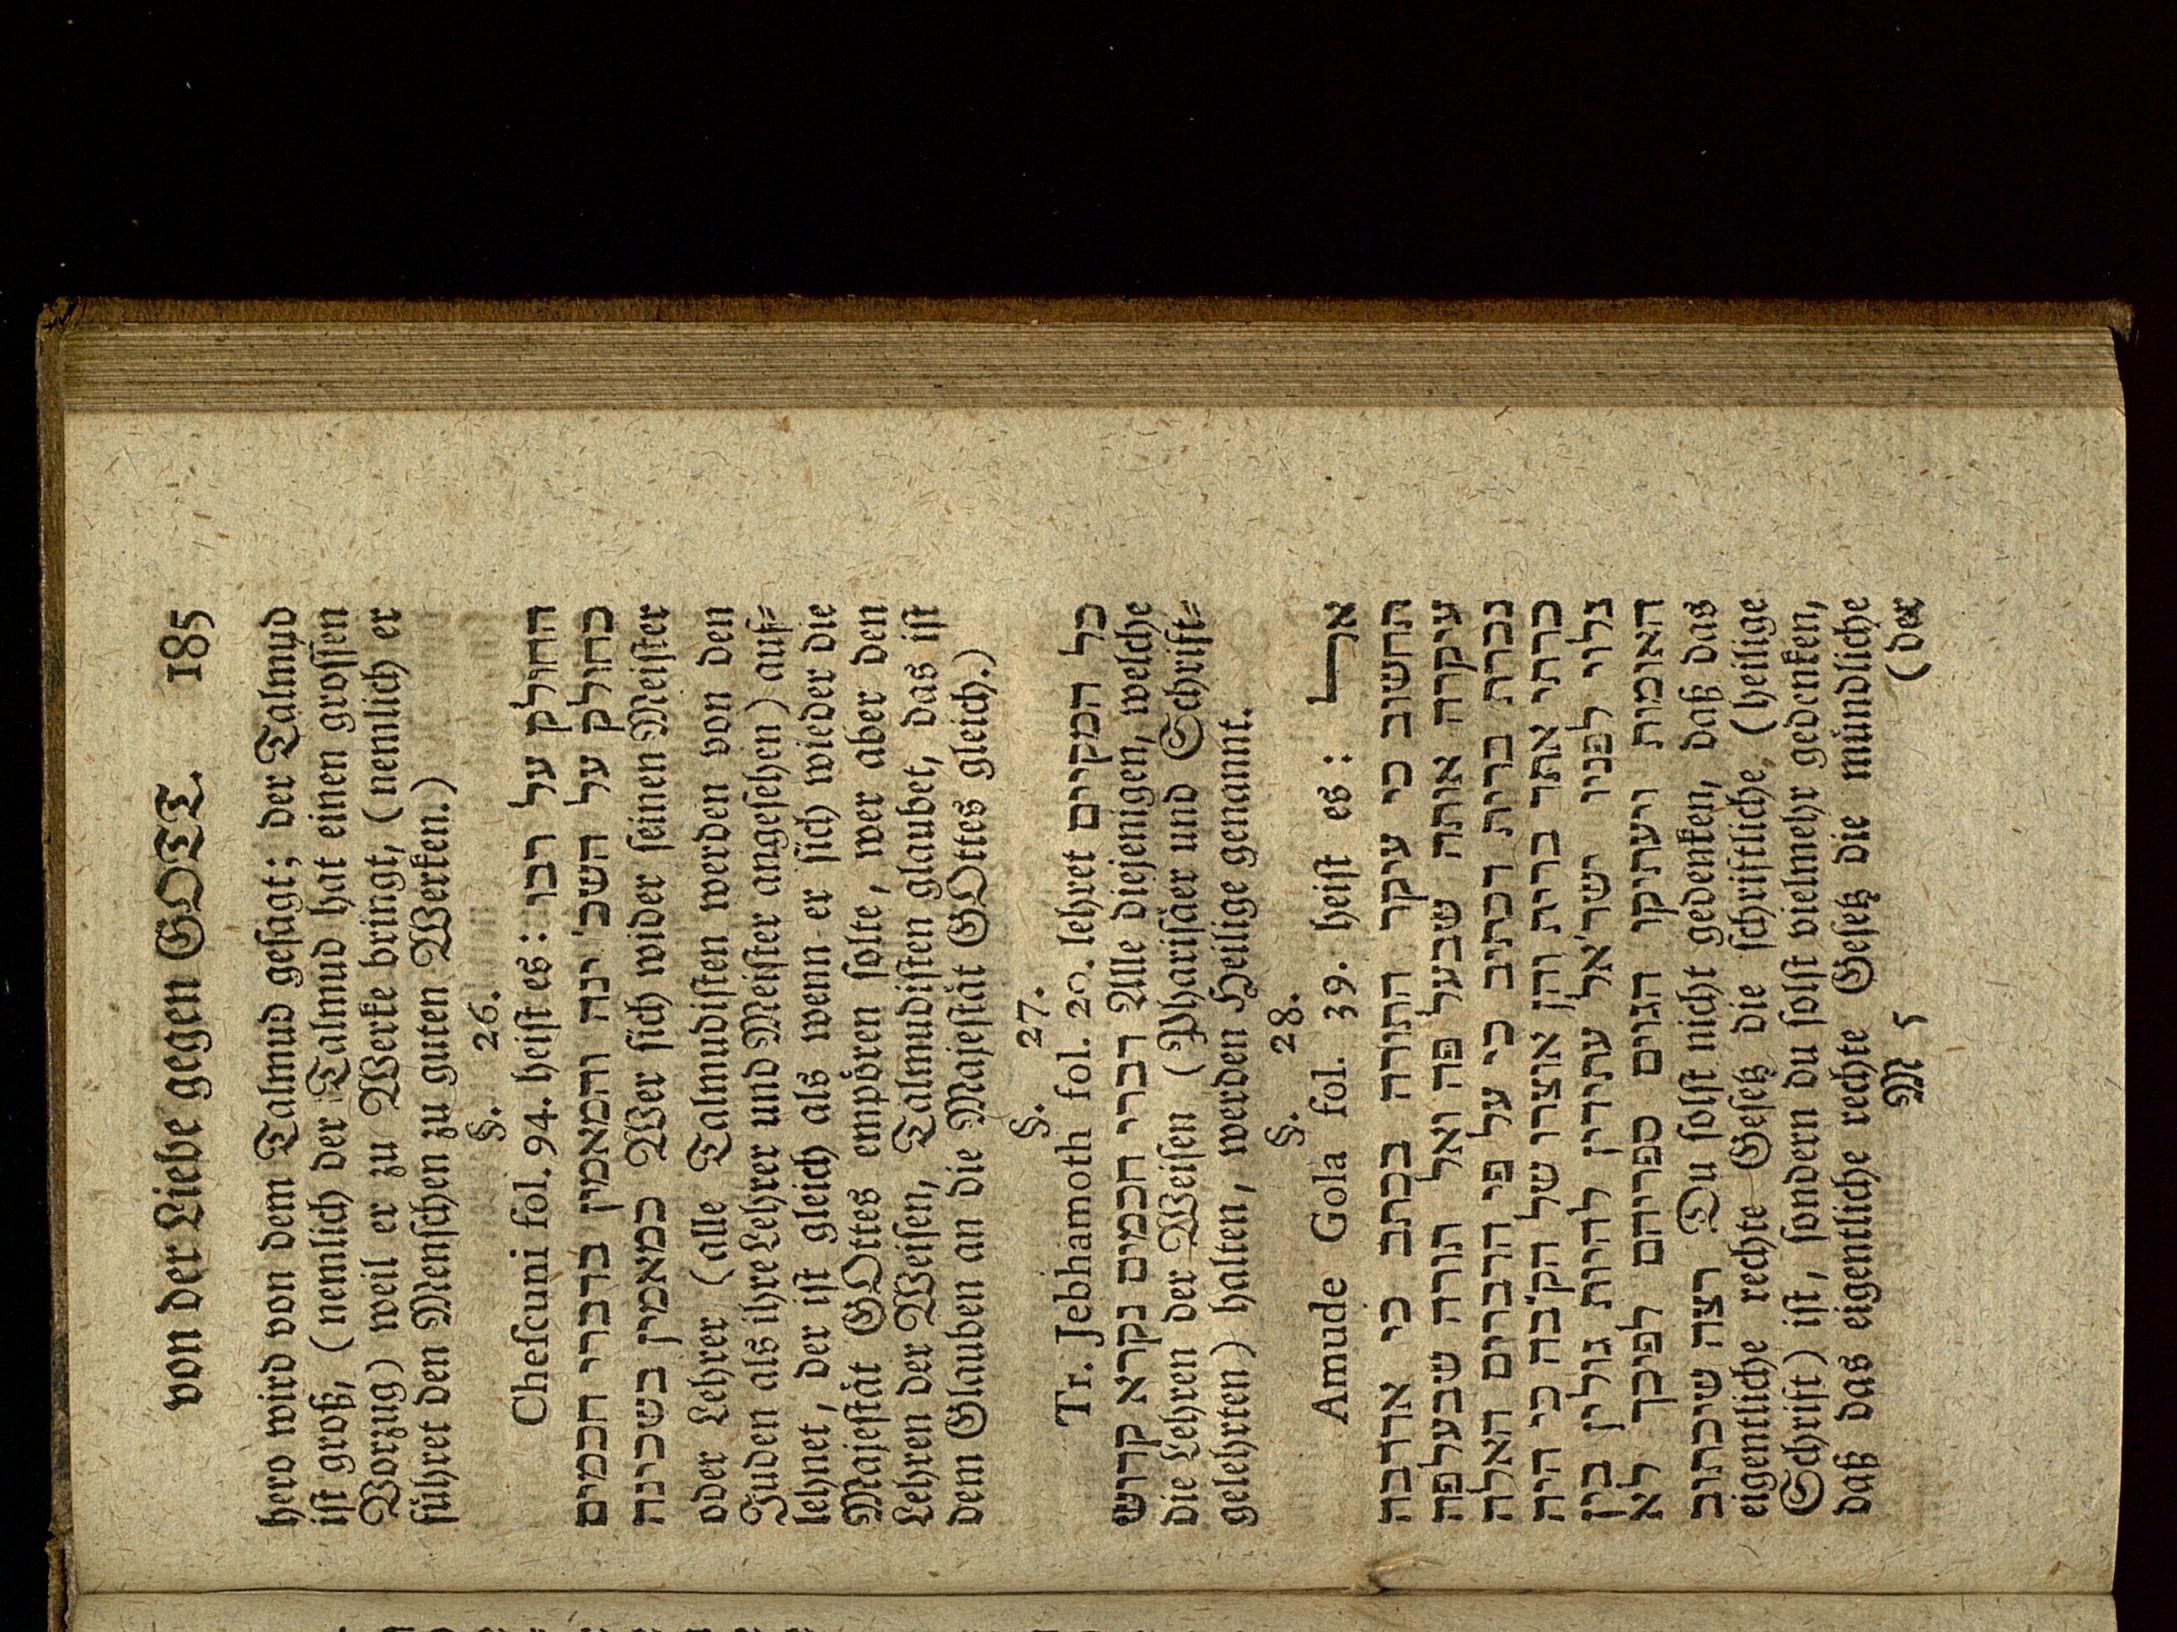 von der Liebe gegen GOTT. 185
hero wird von dem Talmud gesagt; der Talmud
ist groß, (nemlich der Talmud hat einen grossen
Vorzug) weil er zu Werke bringt, (nemlich er
führet den Menschen zu guten Werken.)
§. 26.
Chefscuni fol. 94. heist es: החולק על רבו
כחולק על השכ' ינה והמאמין בדברי חכמים
כמאמין בשכינה Wer sich wider seinen Meister
oder Lehrer (alle Talmudisten werden von den
Juden als ihre Lehrer und Meister angesehen) auf=
lehnet, der ist gleich als wenn er sich wieder die
Majestät GOttes empören solte, wer aber den
Lehren der Weisen, Talmudisten glaubet, das ist
dem Glauben an die Majestät GOttes gleich.)
§. 27.
Tr. Jebhamoth fol. 20. lehret כל המקיים
דברי חכמים נקרא קדוש Alle diejenigen, welche
die Lehren der Weisen (Pharisäer und Schrift=
gelehrten) halten, werden Heilige genannt.
§. 28.
Amude Gola fol. 39. heist es: אל
תחשוב כי עיקר התורה בכתב כי אדרבה
עיקרה אותה שבעל פה ואל תורה שבעלפה
נכרת ברית דכתיב כי על פי הדברים האלה
כרתי אתך ברית והן אוצרו של הק"בה כי היה
גלוי לפניו ישר'אל עתידין להיות גולין בין
האומות ויעתיקו הגוים ספריהם לפיכך לא
רצה שיכתוב Du solst nicht gedenken, daß das
eigentliche rechte Gesetz die schriftliche, (heilige
Schrift) ist, sondern du solst vielmehr gedenken,
daß das eigentliche rechte Gesetz die mündliche
M 5 (der